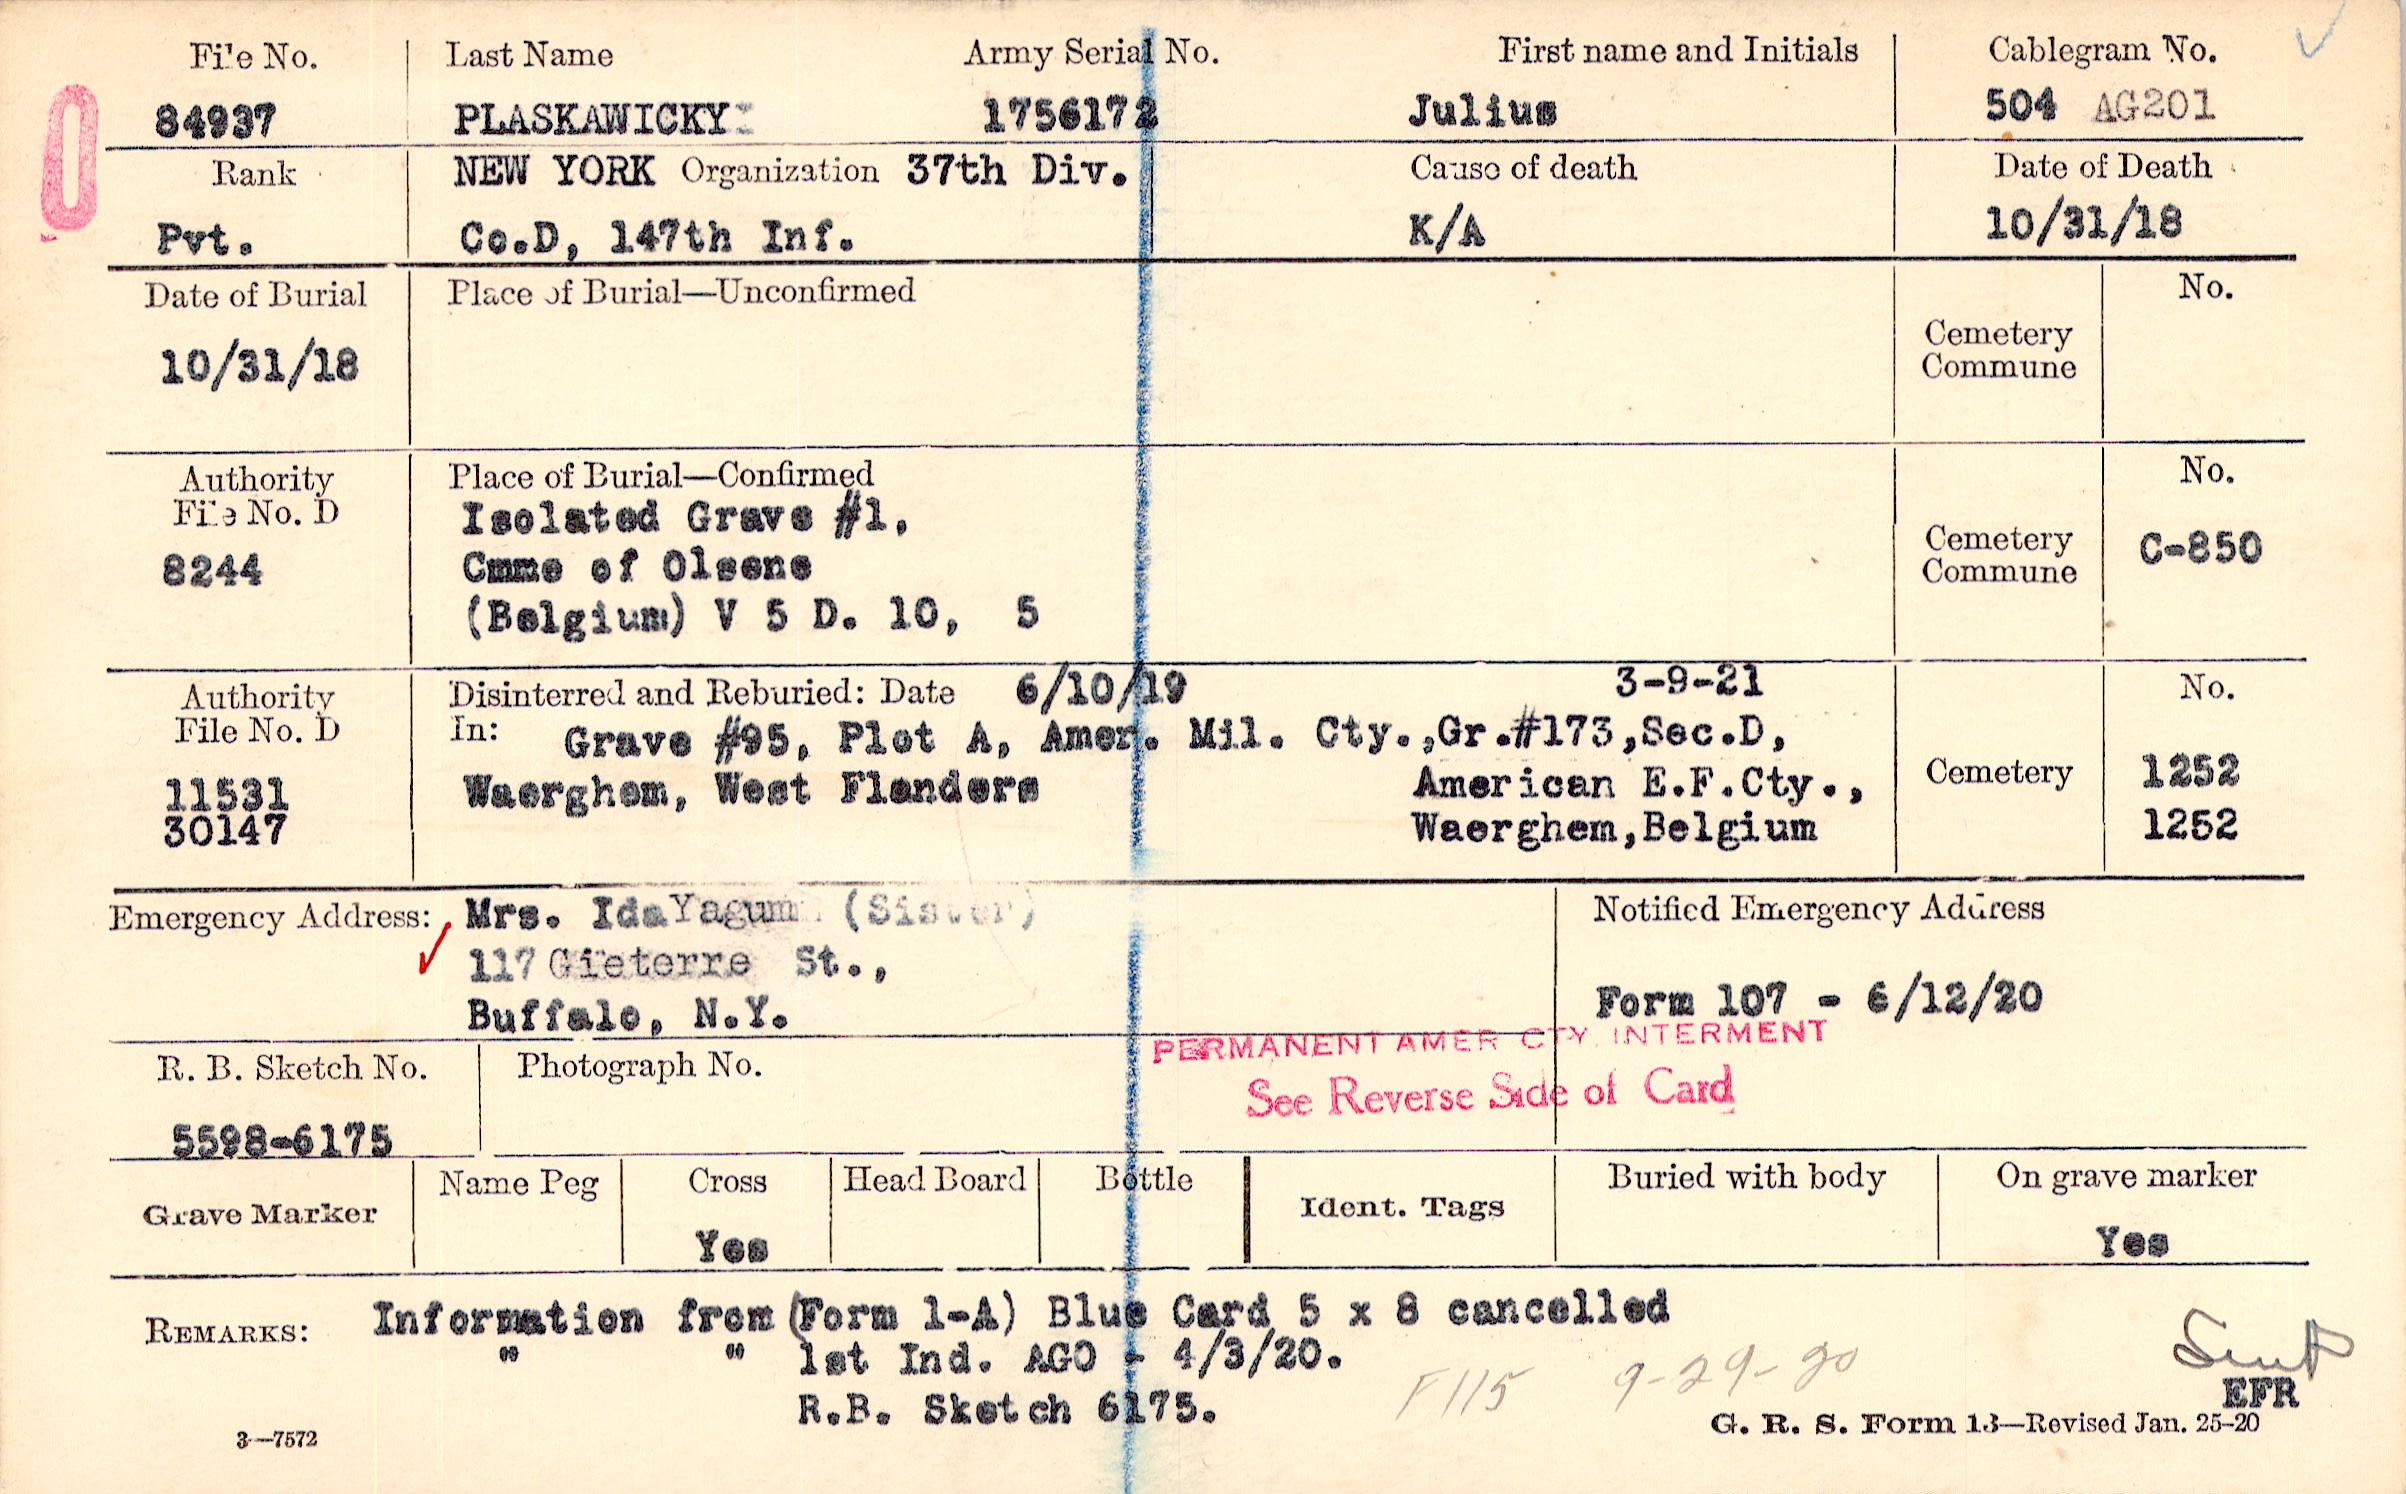 File No. Last Name Army Serial No. First name and Initials Cablegram No.
84937 PLASKAWICKY 1756172 Julius 504 AG201
0
Rank NEW YORK Organization 37th Div. Cause of death Date of Death
Pvt. Co.D, 147th Inf. K/A 10/31/18
Date of Burial Place of Burial—Unconfirmed No.
10/31/18 Cemetery
Commune
Authority Place of Burial—Confirmed No.
File No. D Isolated Grave #1,
8244 Cmme of Olsene Cemetery C-850
Commune
(Belgium) V 5 D. 10, 5
Authority Disinterred and Reburied: Date 6/10/19 3-9-21 No.
File No. D In: Grave #95, Plot A, Amer. Mil. Cty.,Gr.#173,Sec.D,
11531 Waerghem, West Flanders American E.F.Cty., Cemetery 1252
30147 Waerghem,Belgium 1252
Emergency Address: Mrs. Ida (Sister) Notified Emergency Address
117 Gieterre St.,
Buffalo, N.Y. Form 107 - 6/12/20
PERMANENT AMER CTY. INTERMENT
R. B. Sketch No. Photograph No. See Reverse Side of Card
5598-6175
Grave Marker Name Peg Cross Head Board Bottle Ident. Tags Buried with body On grave marker
Yes Yes
REMARKS: Information from (Form 1-A) Blue Card 5 x 8 cancelled
" " 1st Ind. AGO - 4/3/20.
R.B. Sketch 6175. F115 9-29-20
EFR
3—7572 G. R. S. Form 13—Revised Jan. 25-20